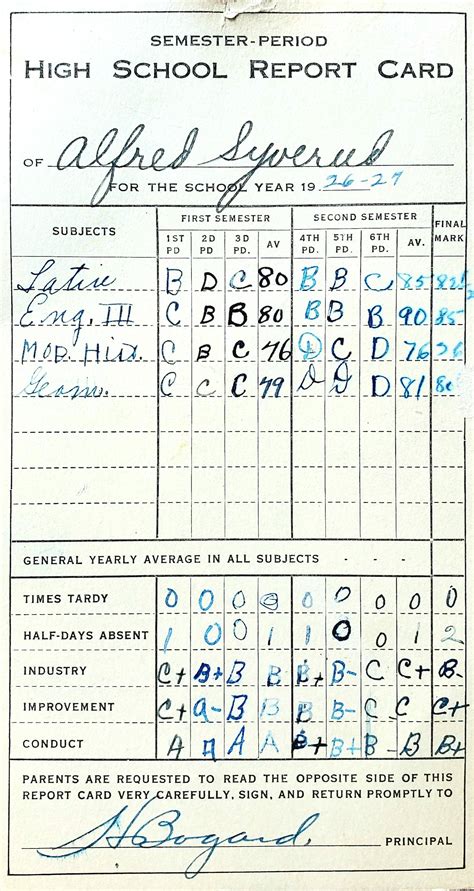 SEMESTER-PERIOD
HIGH SCHOOL REPORT CARD
OF Alfred Syverud
FOR THE SCHOOL YEAR 19 26-27
SUBJECTS FIRST SEMESTER SECOND SEMESTER FINAL MARK
1ST PD. 2D PD. 3D PD. AV 4TH PD. 5TH PD. 6TH PD. AV.
Latin B D C 80 B B C 85 82½
Eng. III C B B 80 B B B 90 85
Mod. Hist. C B C 76 D C D 76 76
Geom. C C C 79 D D D 81 80
GENERAL YEARLY AVERAGE IN ALL SUBJECTS - - -
TIMES TARDY 0 0 0 0 0 0 0 0 0
HALF-DAYS ABSENT 1 0 0 1 1 0 0 1 2
INDUSTRY C+ B+ B B B+ B- C C+ B-
IMPROVEMENT C+ a- B B B B- C C C+
CONDUCT A A A A B+ B+ B- B B+
PARENTS ARE REQUESTED TO READ THE OPPOSITE SIDE OF THIS
REPORT CARD VERY CAREFULLY, SIGN, AND RETURN PROMPTLY TO
H Bogard. PRINCIPAL